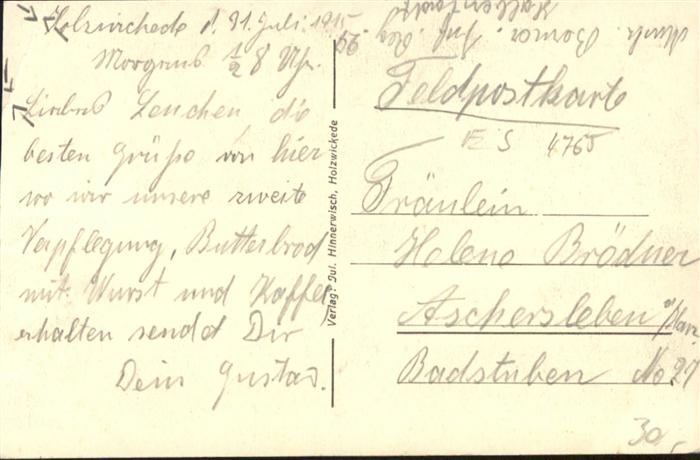 Holzwickede d. 31. Juli 1915
Morgens ½ 8 Uhr.
Liebes Lenchen die
besten Grüße von hier
wo wir unsere zweite
Verpflegung, Butterbrod
mit Wurst und Kaffee
erhalten sendet Dir
Dein Gustav.
Verlag: Jul. Hinnerwisch, Holzwickede
Inf. Reg.
Feldpostkarte
ES 4765
Fräulein
Helene Brödner
Aschersleben a/Harz
Badstuben No. 27
30,-